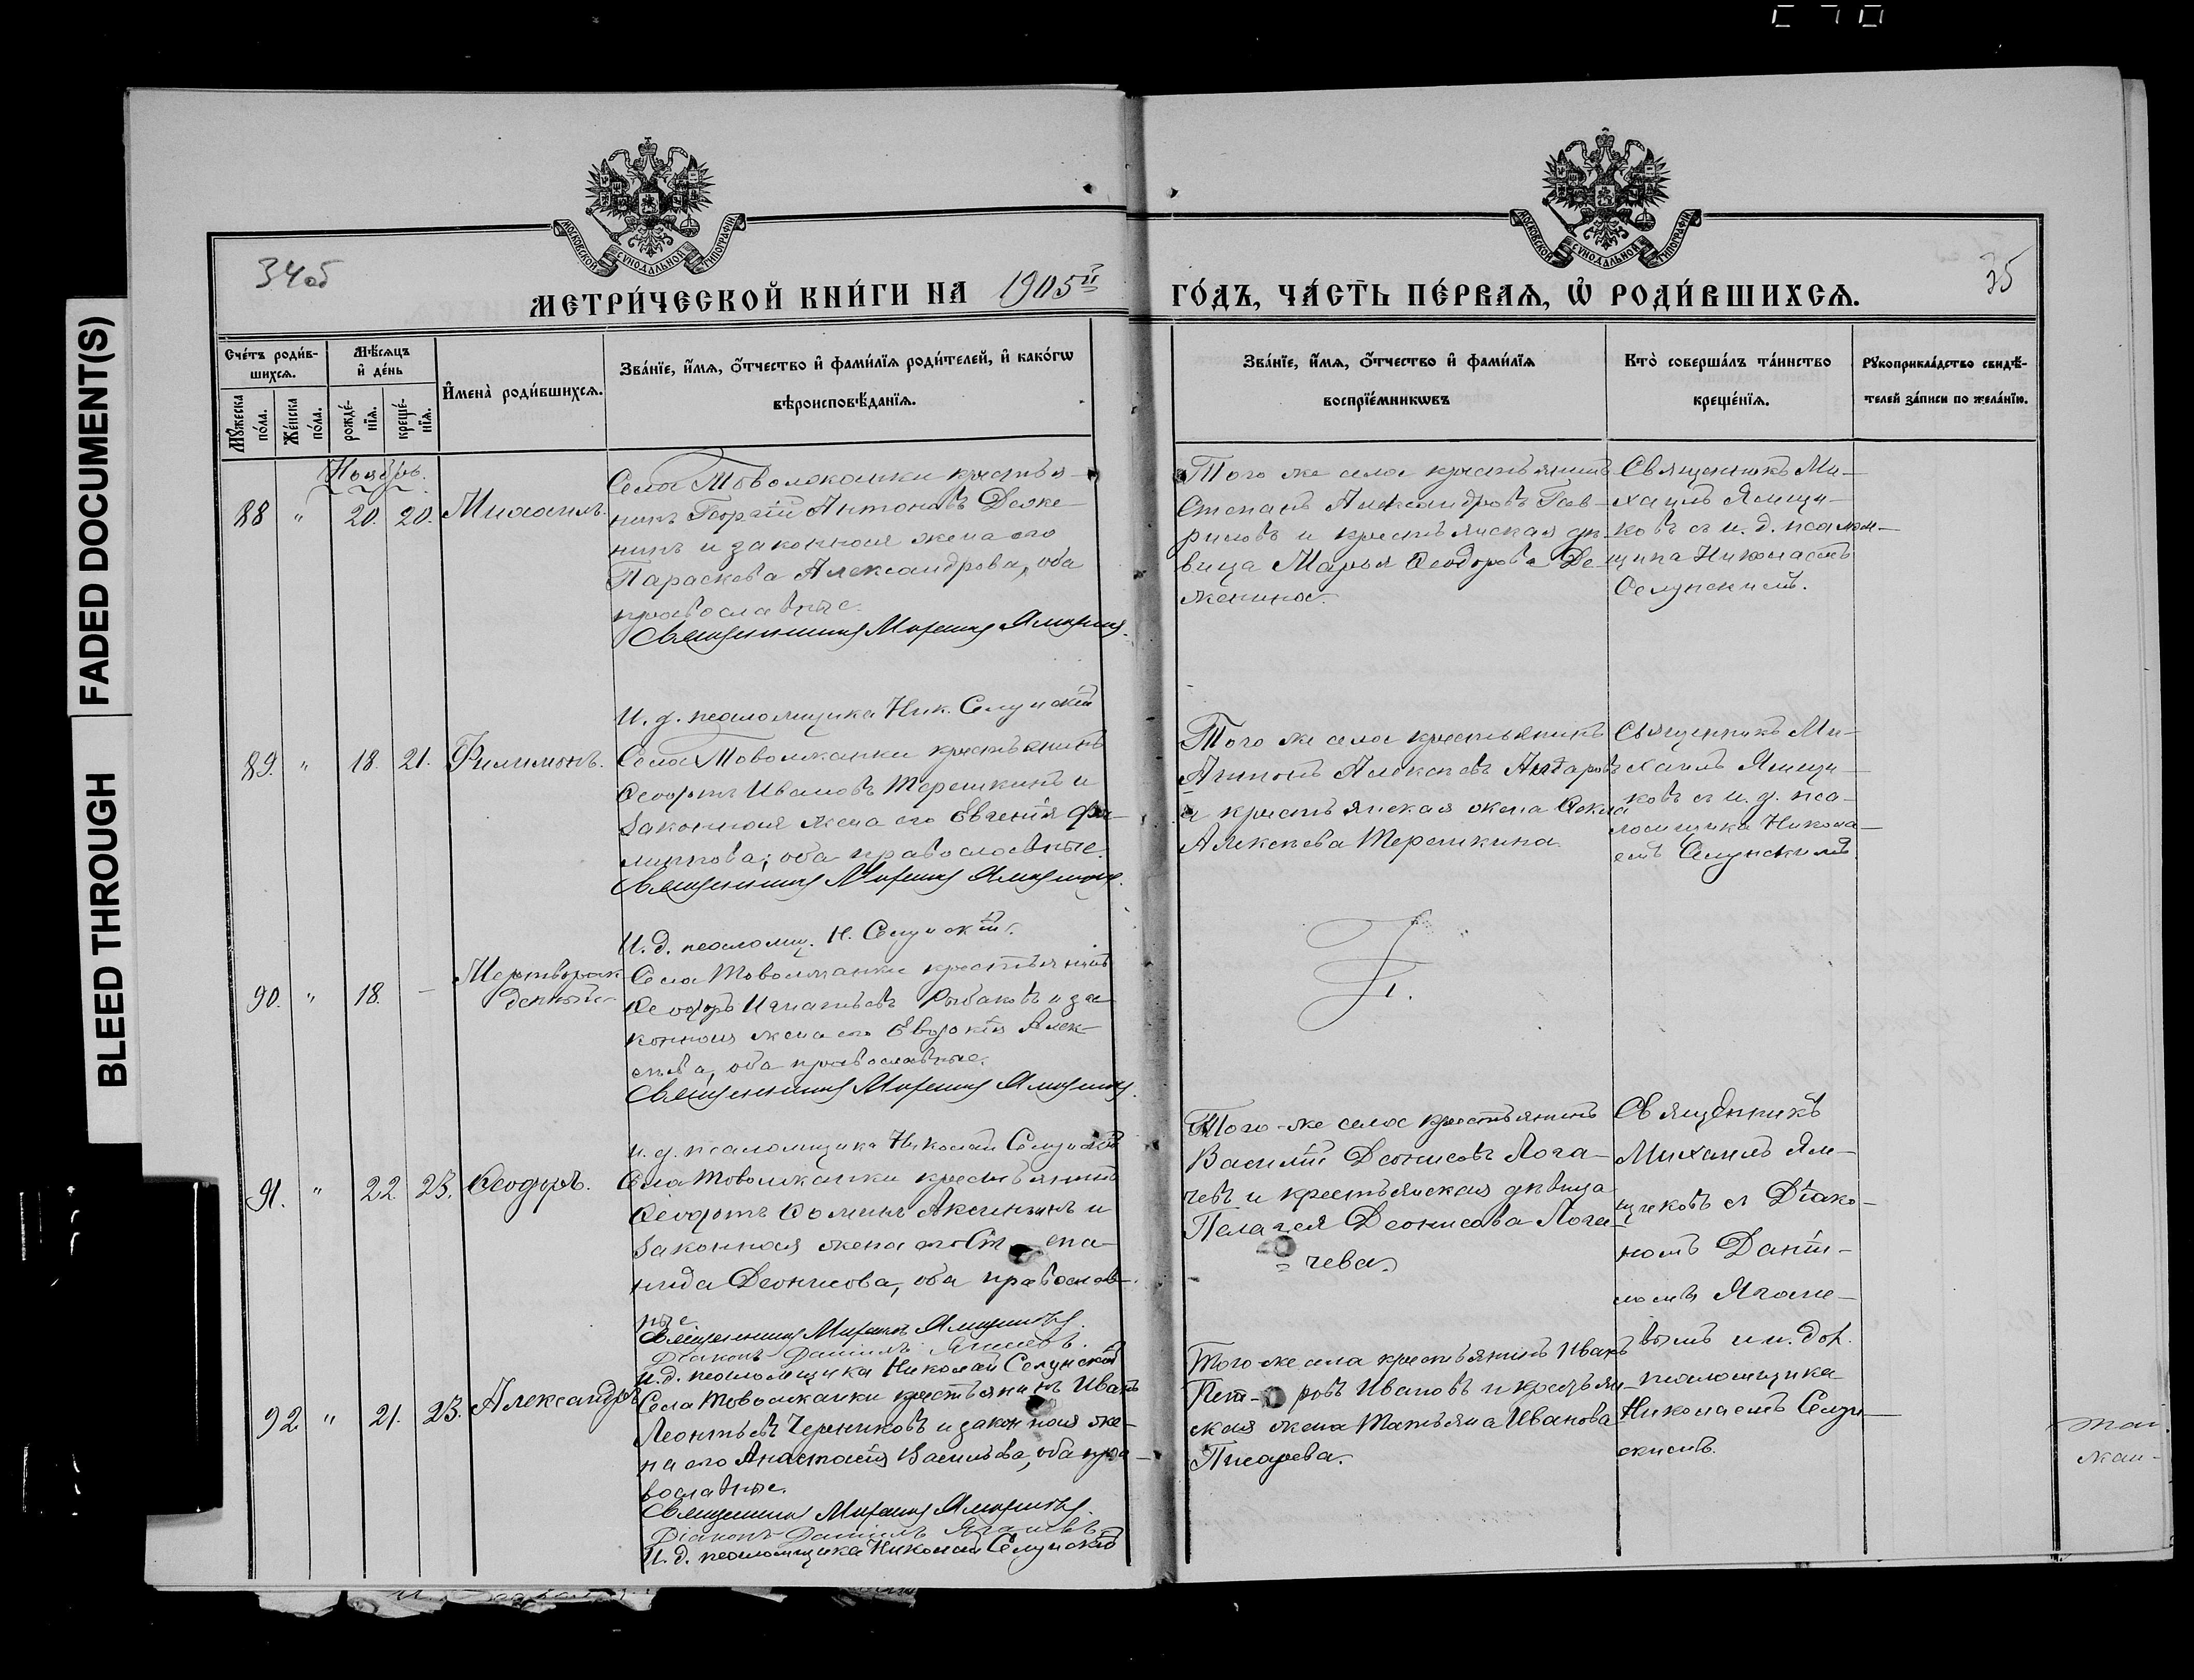 FADED DOCUMENT(S)
BLEED THROUGH
34об
35
МОСКОВСКОЙ СѴНОДАЛЬНОЙ ТИПОГРАФІИ
МОСКОВСКОЙ СѴНОДАЛЬНОЙ ТИПОГРАФІИ
МЕТРИ́ЧЕСКОЙ КНИ́ГИ НА 1905й
ГО́ДЪ, ЧА́СТЬ ПЕ́РВАѦ, Ѡ҆ РОДИ́ВШИХСѦ.
Сче́тъ роди́в-
шихсѧ.
Мꙋ́жеска
по́ла.
Же́нска
по́ла.
Мѣ́сѧцъ
и҆ де́нь
рожде́-
нїѧ.
креще́-
нїѧ.
И҆мена̀ роди́вшихсѧ.
Зва́нїе, и҆́мѧ, ѻ҆́тчество и҆ фами́лїѧ роди́телей, и҆ како́гѡ
вѣроисповѣ́данїѧ.
Зва́нїе, и҆́мѧ, ѻ҆́тчество и҆ фами́лїѧ
воспрїе́мникѡвъ
Кто̀ соверша́лъ та́инство
креще́нїѧ.
Рꙋкоприкла́дство свидѣ́-
телей за́писи по жела́нїю.
Ноябрь.
88 " 20. 20. Михаилъ.
Села Товолжанки крестья-
нинъ Георгій Антоновъ Деже-
нинъ и законная жена его
Параскева Александрова, оба
православные.
Священникъ Михаилъ Ямщиковъ.
И. д. псаломщика Ник. Селунскій
Того же села крестьянинъ
Степанъ Александровъ Гав-
риловъ и крестьянская дѣ-
вица Марья Ѳеодорова Де-
женина.
Священникъ Ми-
хаилъ Ямщи-
ковъ съ и. д. псалом-
щика Николаемъ
Селунскимъ.
89. " 18. 21. Филимонъ.
Села Товолжанки крестьянинъ
Ѳеодоръ Ивановъ Терешкинъ и
законная жена его Евгенія Фи-
липпова; оба православные.
Священникъ Михаилъ Ямщиковъ.
И. д. псаломщ. Н. Селунскій.
Того же села крестьянинъ
Алексѣевъ
и крестьянская жена
Алексѣева Терешкина.
Священникъ Ми-
хаилъ Ямщи-
ковъ съ и. д. пса-
ломщика Никола-
емъ Селунскимъ.
90. " 18. - Мертворож-
денный
Села Товолжанки крестьянинъ
Ѳеодоръ Игнатьевъ Рыбаковъ и за-
конная жена его Евдокія Алек-
сѣева, оба православные.
Священникъ Михаилъ Ямщиковъ.
и. д. псаломщика Николай Селунскій
91. " 22. 23. Ѳеодоръ.
Села Товолжанки крестьянинъ
Ѳеодоръ Ѳоминъ Аксининъ и
законная жена его Сте па-
нида Деонисова, оба православ-
ные.
Священникъ Михаилъ Ямщиковъ.
Діаконъ Даніилъ Яганевъ.
и. д. псаломщика Николай Селунскій
Того-же села крестьянинъ
Василій Деонисовъ Лога-
чевъ и крестьянская дѣвица
Пелагея Деонисова Лога-
чева.
Священникъ
Михаилъ Ям-
щиковъ съ Діако-
номъ Даніи-
ломъ Ягане-
вымъ и и. дол.
псаломщика
Николаемъ Селун-
скимъ.
92 " 21. 23. Александръ
Села Товолжанки крестьянинъ Иванъ
Леонтьевъ Черниковъ и законная же-
на его Анастасія Васильева, оба пра-
вославные.
Священникъ Михаилъ Ямщиковъ.
Діаконъ Даніилъ Яганевъ.
И. д. псаломщика Николай Селунскій
Того-же села крестьянинъ Иванъ
Пет- ровъ Ивановъ и крестьян-
ская жена Татьяна Иванова
Писарева.